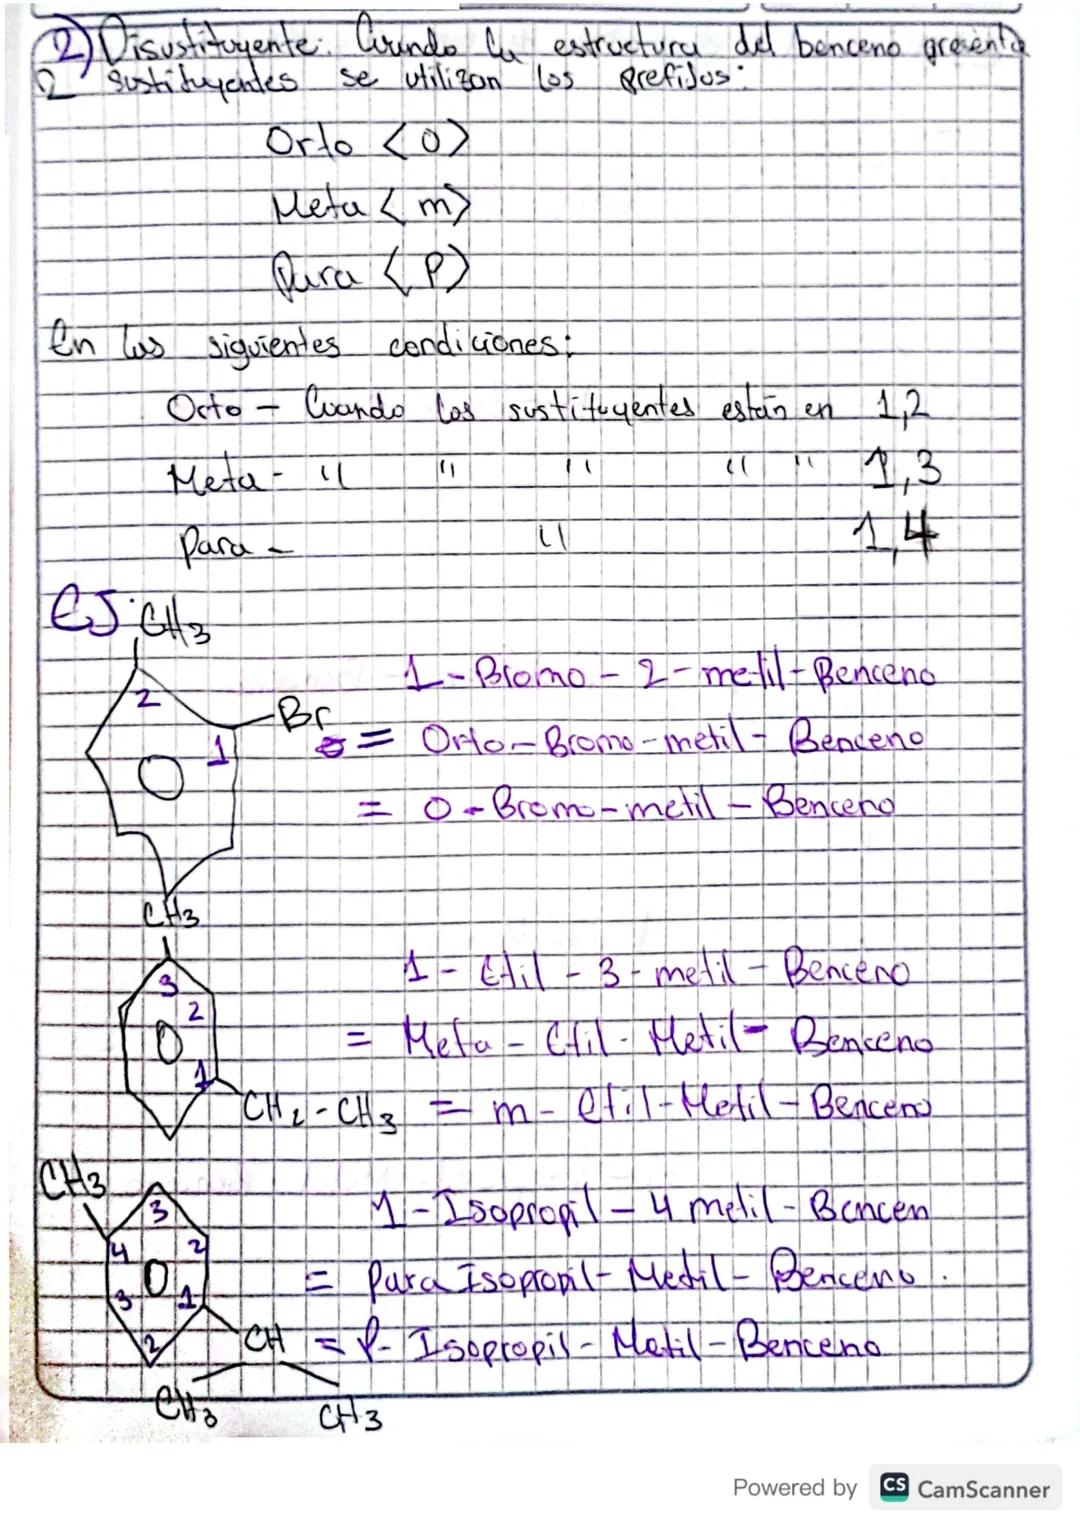 2) Disustituyente: Cuando la estructura del benceno presenta
2 sustituyentes se utilizan los prefijos:
Orto <o>
Meta <m>
Para <P>
En las siguientes condiciones:
Orto - Cuando los sustituyentes están en 1,2
Meta - " " " " " 1,3
Para - " 1,4
EJ:
CH3
2
Br
1
1-Bromo-2-metil-Benceno
= Orto-Bromo-metil-Benceno
= O-Bromo-metil-Benceno
CH3
3
2
1
CH2-CH3
1-Etil-3-metil-Benceno
= Meta-Etil-Metil-Benceno
= m-Etil-Metil-Benceno
CH3
3
4 2
3 1
2
CH
CH3 CH3
1-Isopropil-4 metil-Bencen
= Para Isopropil-Metil-Benceno.
= P-Isopropil-Metil-Benceno
Powered by CS CamScanner